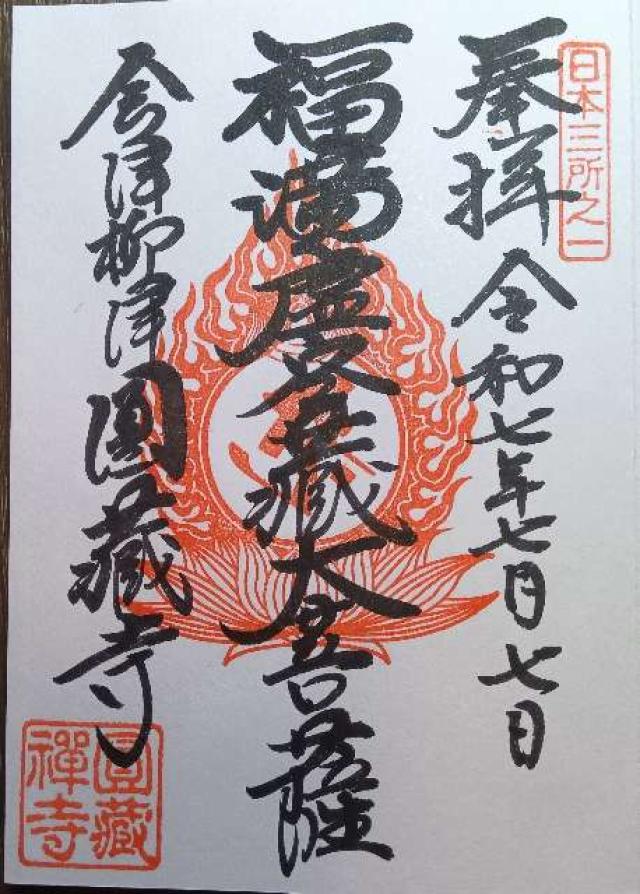 日本三所之一
奉拝 令和七年七月七日
福満虚空蔵大菩薩
会津柳津 圓蔵寺
圓藏禪寺